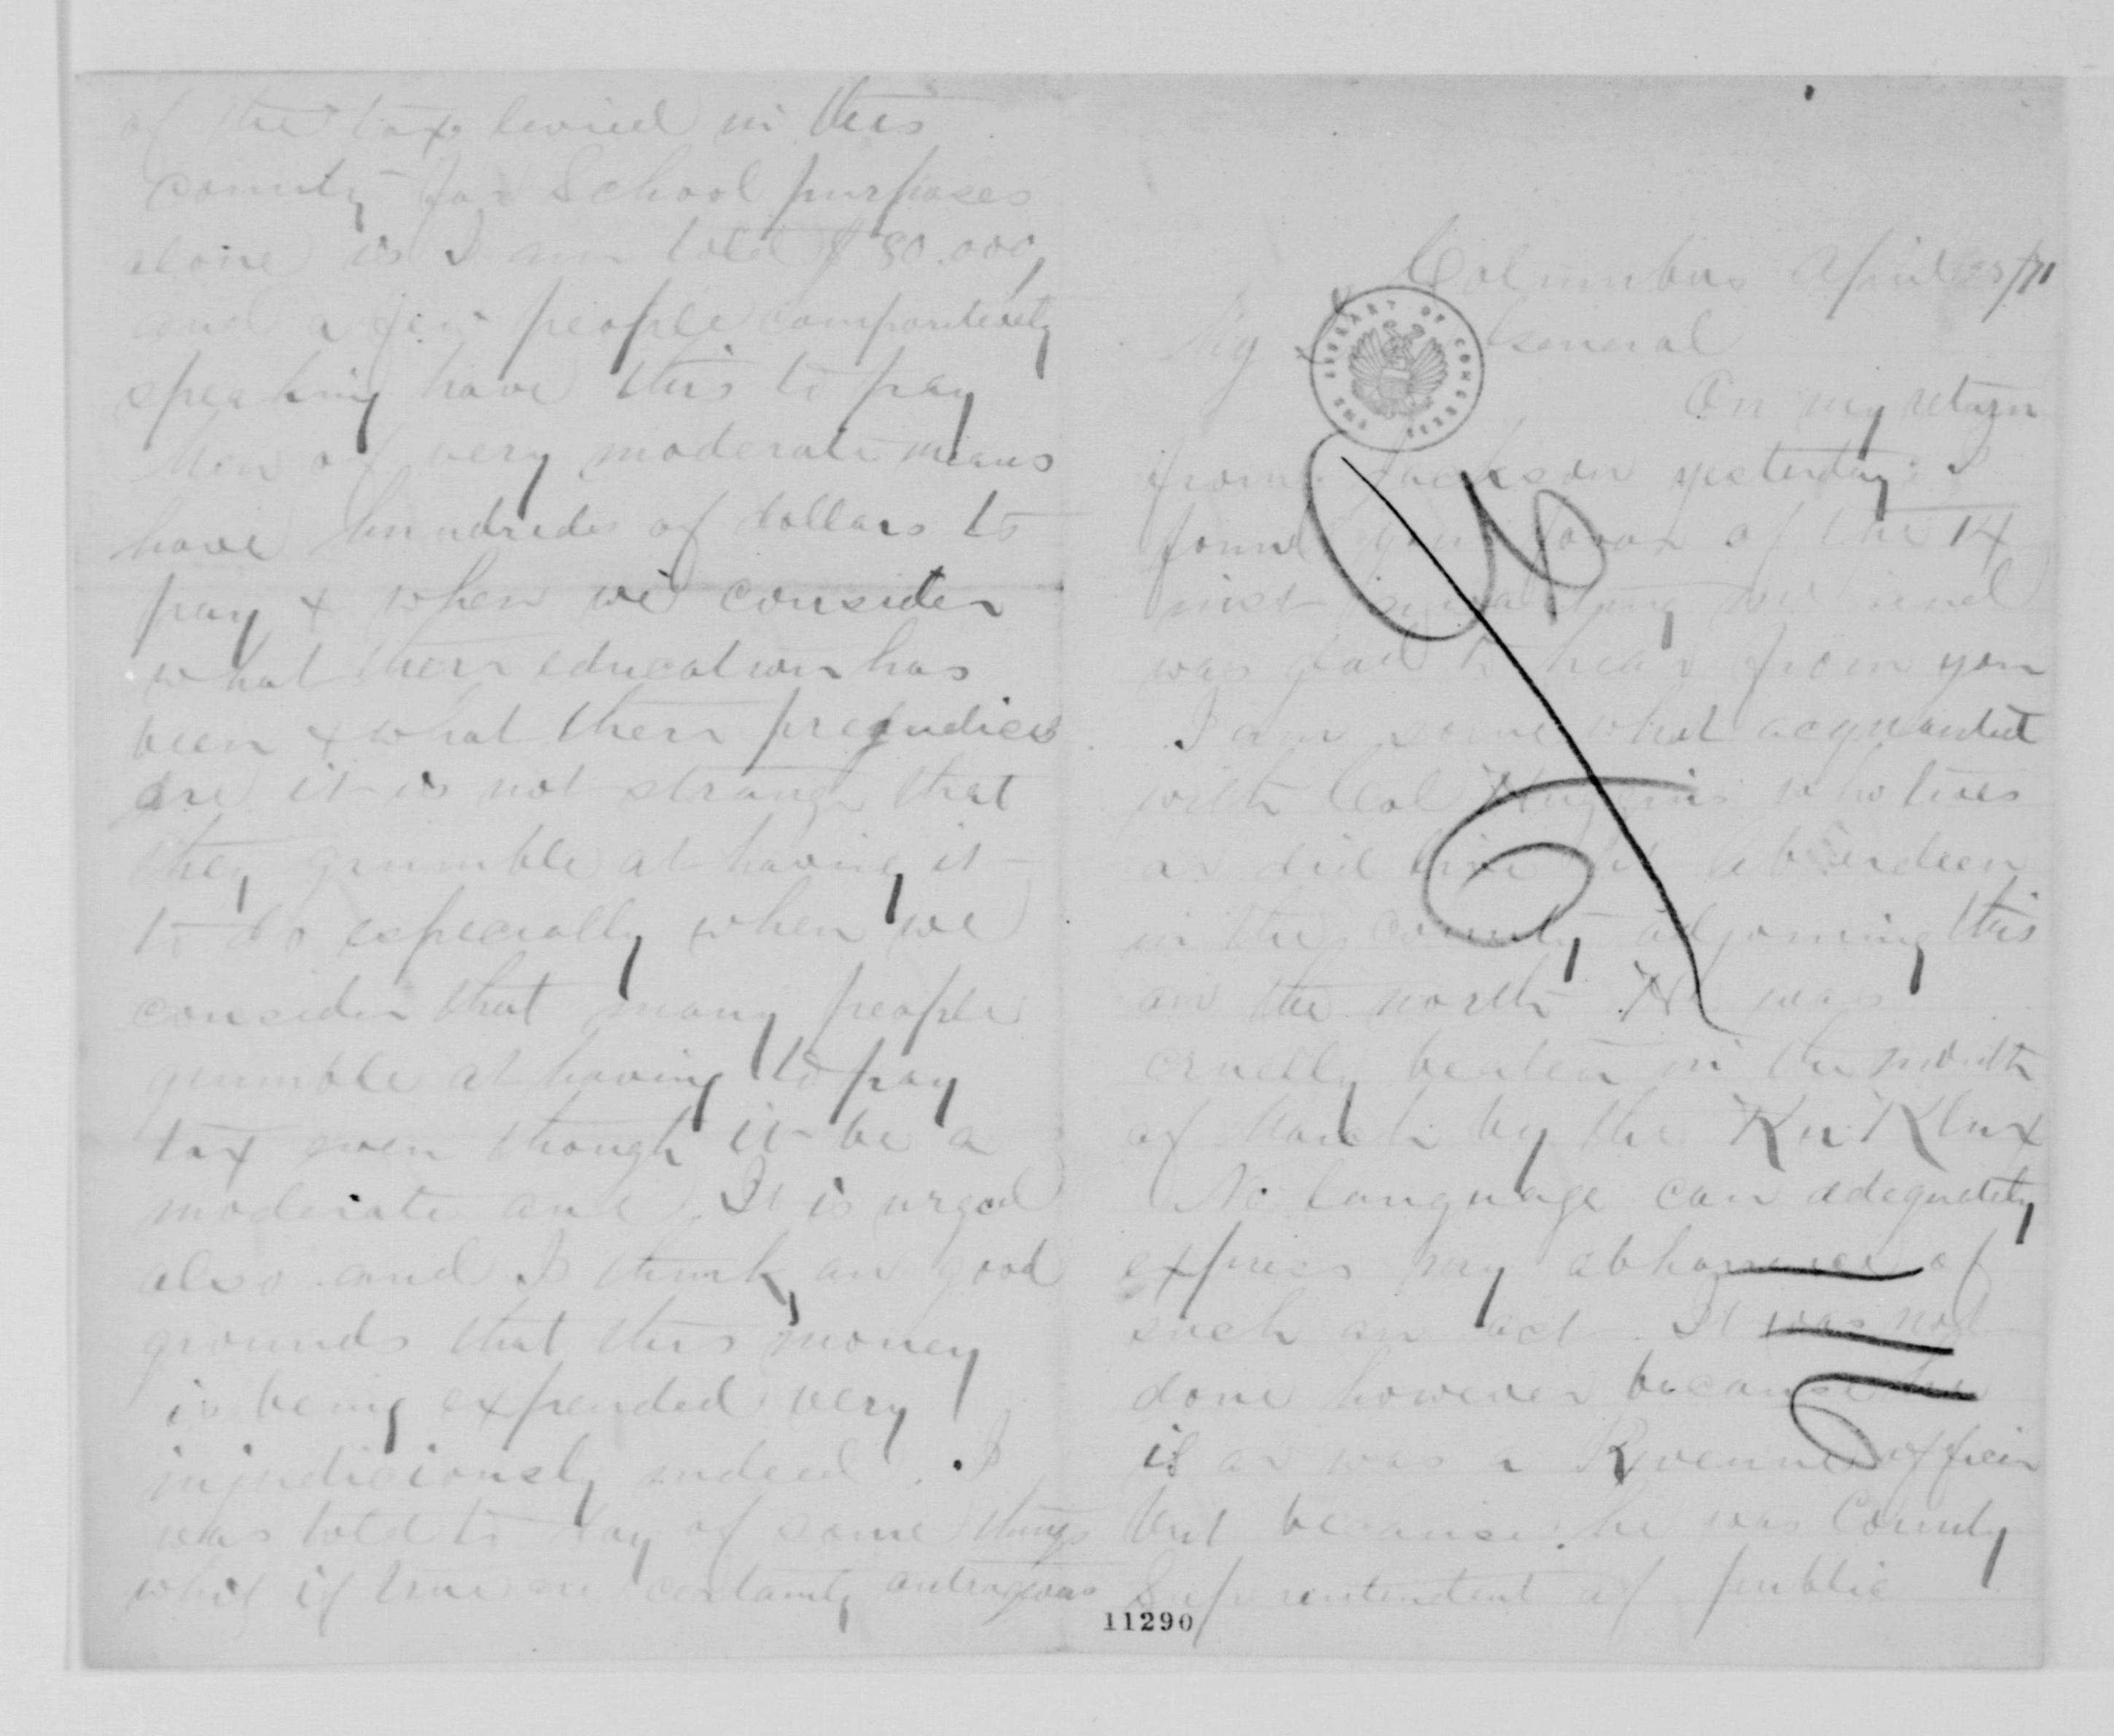 Columbus April 23/71
My General
On my return
from Jackson yesterday I
found your favor of the 14
inst awaiting me and
was glad to hear from you
I am some what acquainted
with Col Huggins who lives
or did live at Aberdeen
in the county adjoining this
on the north He was
cruelly beaten in the month
of March by the Ku Klux
No language can adequately
express my abhorrence of
such an act It was not
done however because he
is or was a Revenue officer
but because he was County
Superintendent of public
11290
of the tax levied in this
county for School purposes
alone is I am told $80.000,
and a few people comparitively
speaking have this to pay
Men of very moderate means
have hundrides of dollars to
pay + when we consider
what their education has
been + what their prejudices
are it is not strange that
they grumble at having it
to do especially when we
consider that many people
grumble at having to pay
tax even though it be a
moderate one. It is urged
also and I think on good
grounds that this money
is being expended very
injudiciously indeed. I
was told to day of some things
which if true are certainly outrageous
THE LIBRARY OF CONGRESS